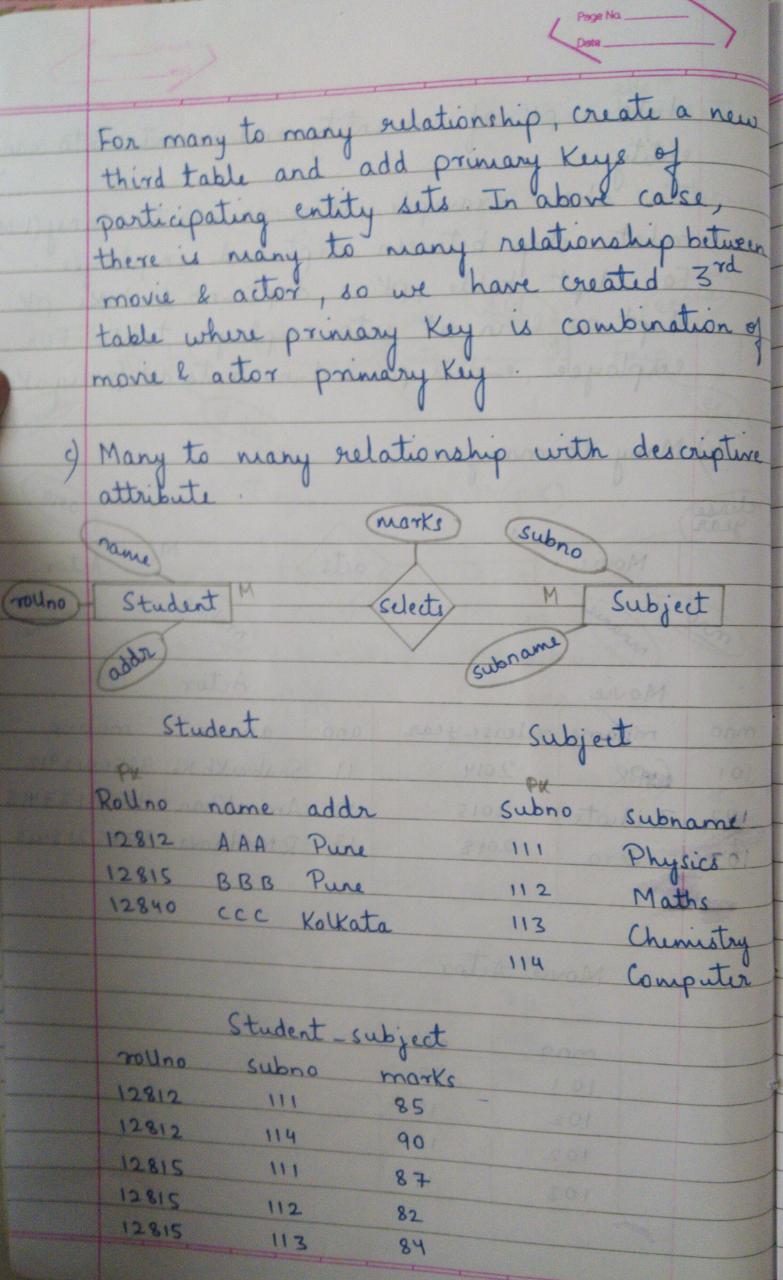 Page No.
Date
For many to many relationship, create a new
third table and add primary keys of
participating entity sets. In above case,
there is many to many relationship between
movie & actor, so we have created 3rd
table where primary key is combination of
movie & actor primary key.
c) Many to many relationship with descriptive
attribute.
name marks subno
rollno Student M selects M Subject
addr subname
Student Subject
PK PK
Rollno name addr Subno subname
12812 AAA Pune 111 Physics
12815 BBB Pune 112 Maths
12840 CCC Kolkata 113 Chemistry
114 Computer
Student_subject
rollno subno marks
12812 111 85
12812 114 90
12815 111 87
12815 112 82
12815 113 84